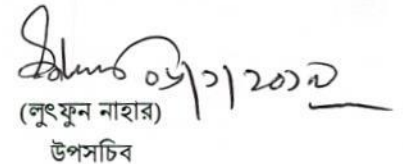 ০৬/১/২০১৯
(লুৎফুন নাহার)
উপসচিব